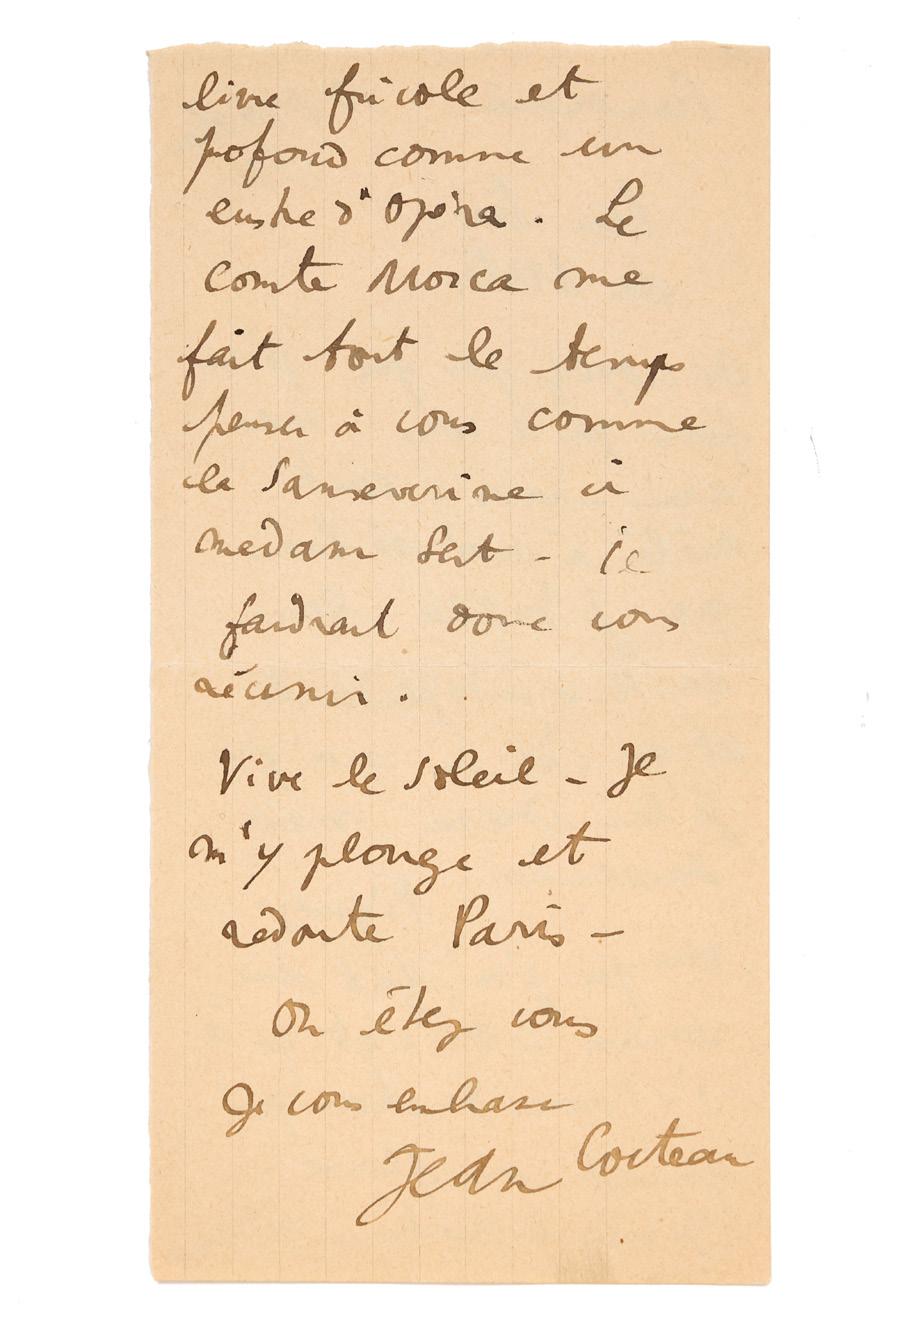 livre frivole et
pofond comme un
lustre d'Opéra. Le
comte Mosca me
fait tout le temps
penser à vous comme
la Sanseverine à
madame Sert - il
faudrait donc vous
réunir.
Vive le soleil - Je
m'y plonge et
redoute Paris -
Ou êtez vous
Je vous embrasse
Jean Cocteau